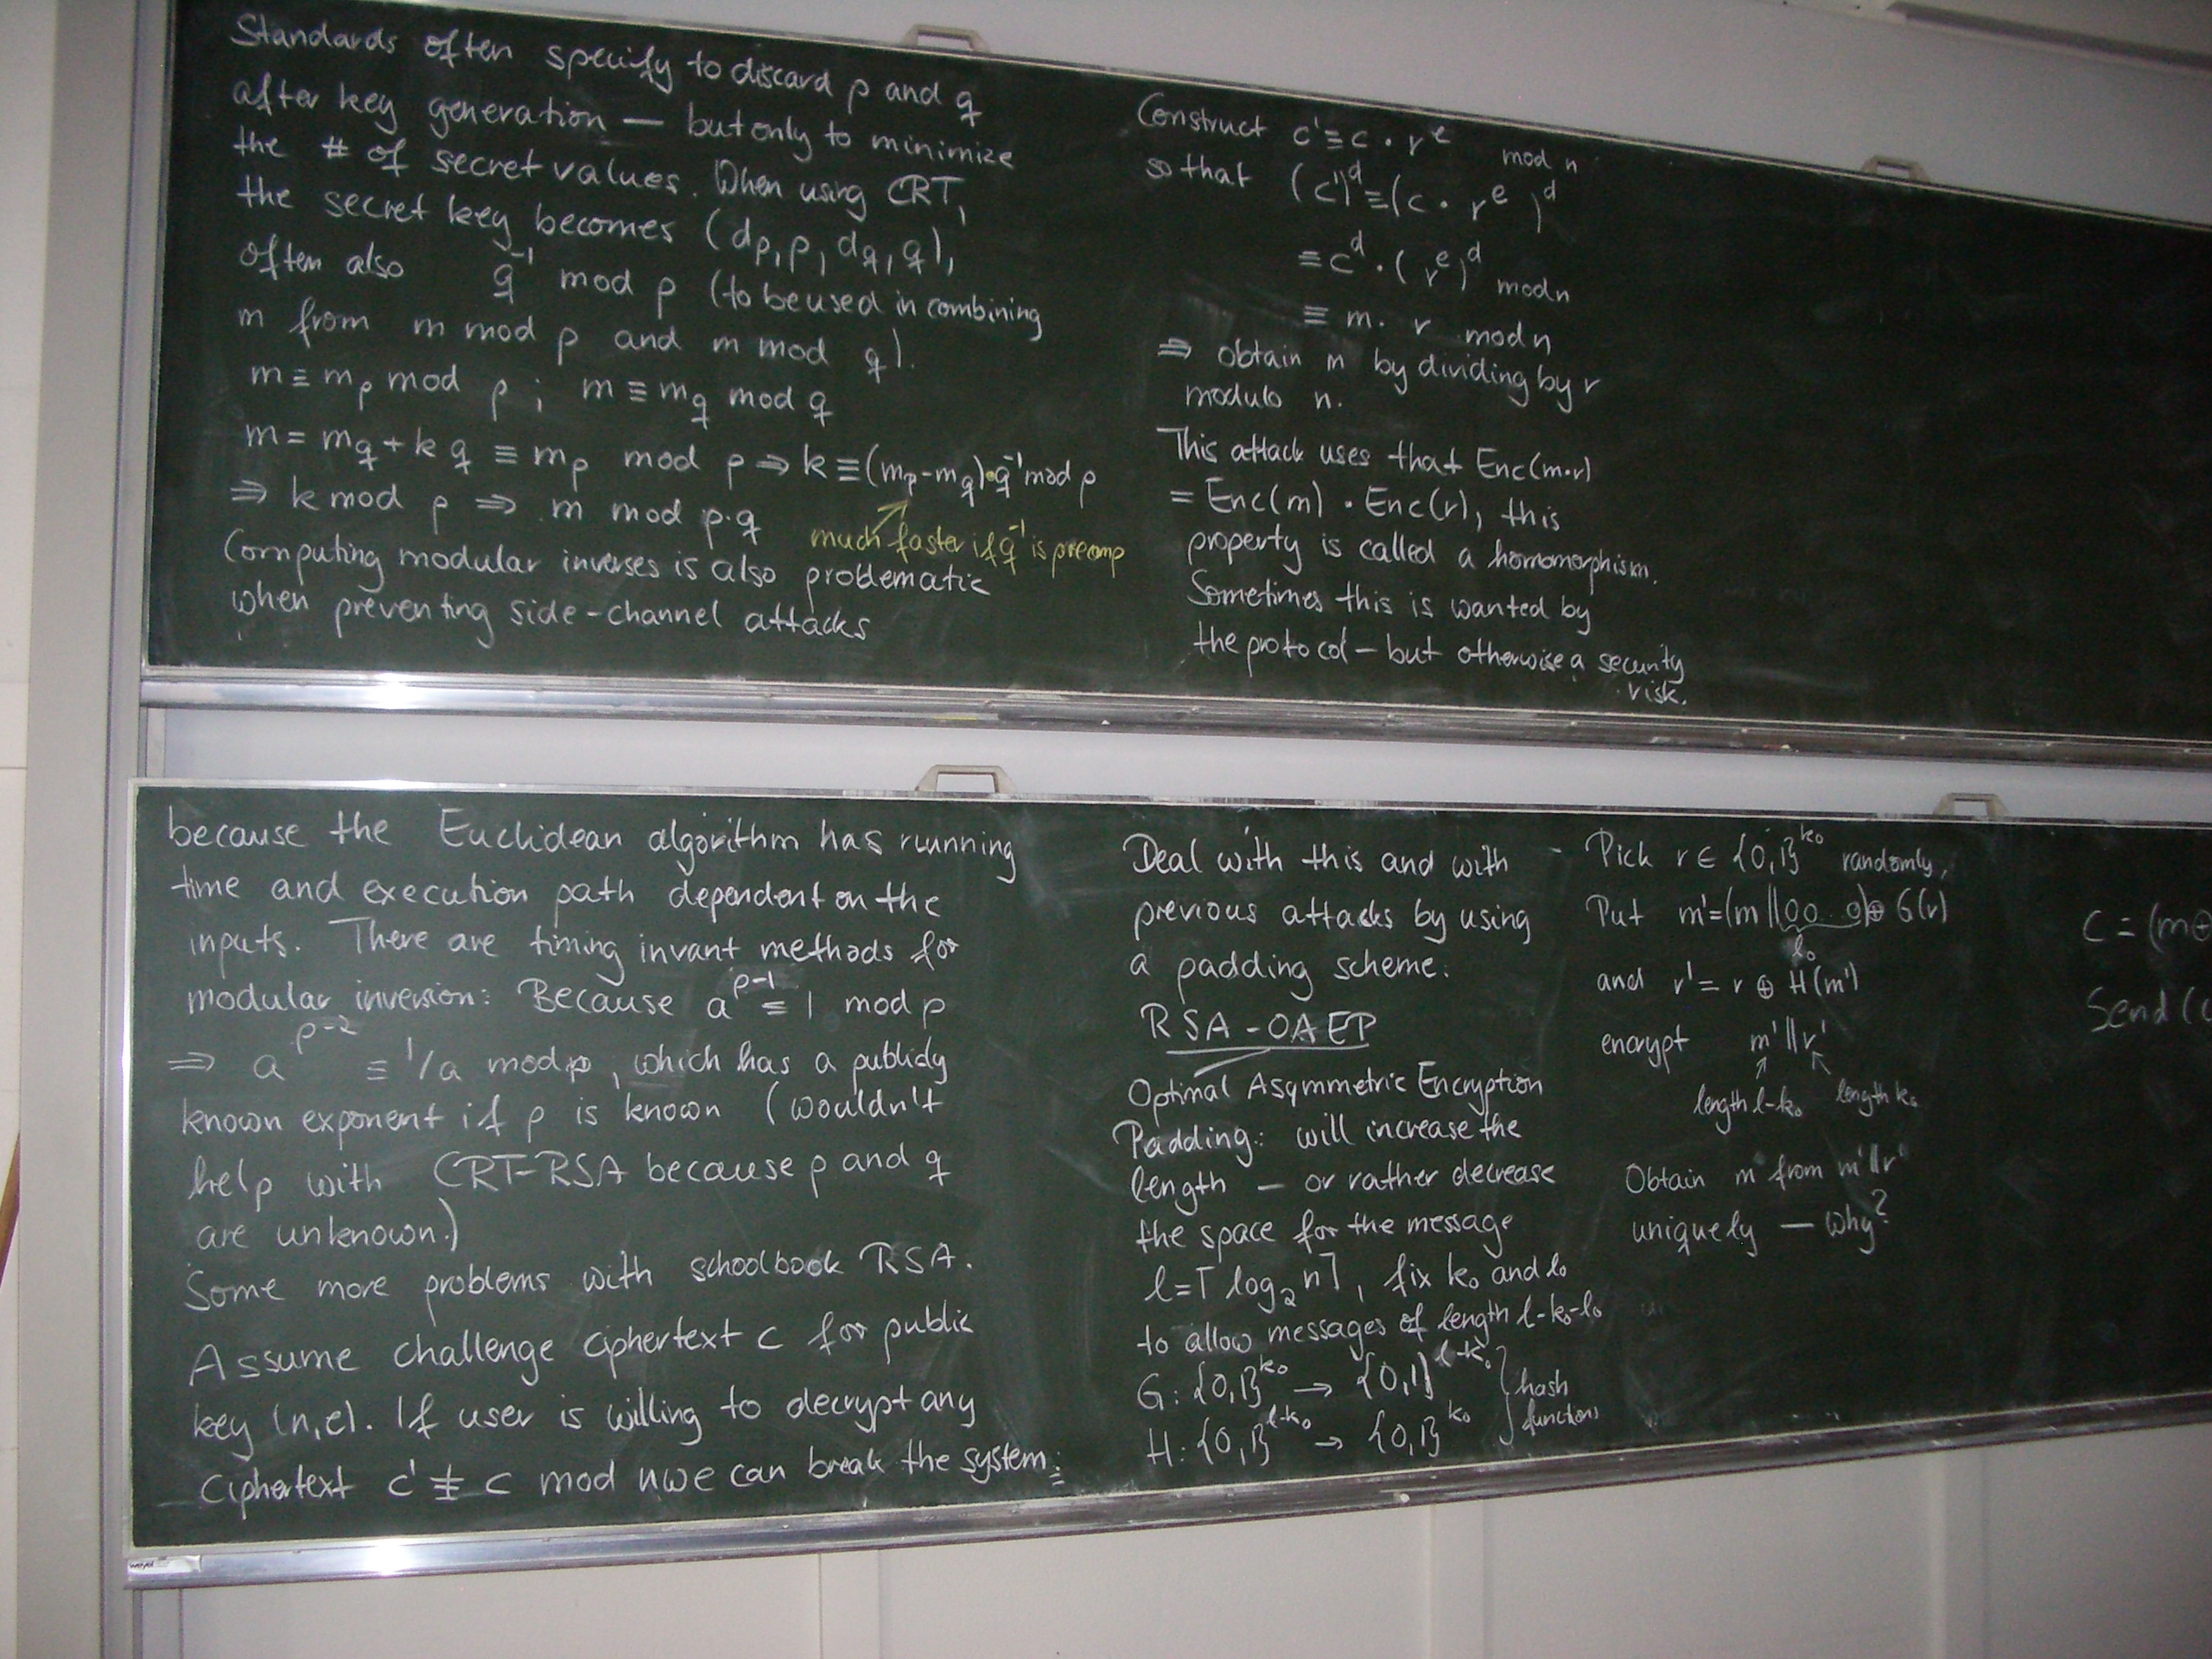 Standards often specify to discard p and q
after key generation — but only to minimize
the # of secret values. When using CRT,
the secret key becomes (d_p, p, d_q, q),
often also q^{-1} mod p (to be used in combining
m from m mod p and m mod q).
m ≡ m_p mod p ; m ≡ m_q mod q
m = m_q + k q ≡ m_p mod p ⇒ k ≡ (m_p - m_q)·q^{-1} mod p
⇒ k mod p ⇒ m mod p·q
much faster if q^{-1} is precomp
Computing modular inverses is also problematic
when preventing side-channel attacks
Construct c' ≡ c · r^e mod n
so that (c')^d ≡ (c · r^e)^d
≡ c^d · (r^e)^d mod n
≡ m · r mod n
⇒ obtain m by dividing by r
modulo n.
This attack uses that Enc(m·r)
= Enc(m) · Enc(r), this
property is called a homomorphism.
Sometimes this is wanted by
the protocol – but otherwise a security
risk.
because the Euclidean algorithm has running
time and execution path dependent on the
inputs. There are timing invant methods for
modular inversion: Because a^{p-1} ≡ 1 mod p
⇒ a^{p-2} ≡ 1/a mod p, which has a publicly
known exponent if p is known (wouldn't
help with CRT-RSA because p and q
are unknown.)
Some more problems with schoolbook RSA.
Assume challenge ciphertext c for public
key (n,e). If user is willing to decrypt any
ciphertext c' ≢ c mod n we can break the system:
Deal with this and with
previous attacks by using
a padding scheme:
RSA-OAEP
Optimal Asymmetric Encryption
Padding: will increase the
length — or rather decrease
the space for the message
l = ⌈log_2 n⌉, fix k_0 and l_0
to allow messages of length l-k_0-l_0
G: {0,1}^{k_0} → {0,1}^{l-k_0}
H: {0,1}^{l-k_0} → {0,1}^{k_0}
hash
functions
Pick r ∈ {0,1}^{k_0} randomly,
Put m' = (m || 00...0) ⊕ G(r)
l_0
and r' = r ⊕ H(m')
encrypt m' || r'
length l-k_0 length k_0
Obtain m from m' || r'
uniquely — why?
C = (m ⊕
Send (